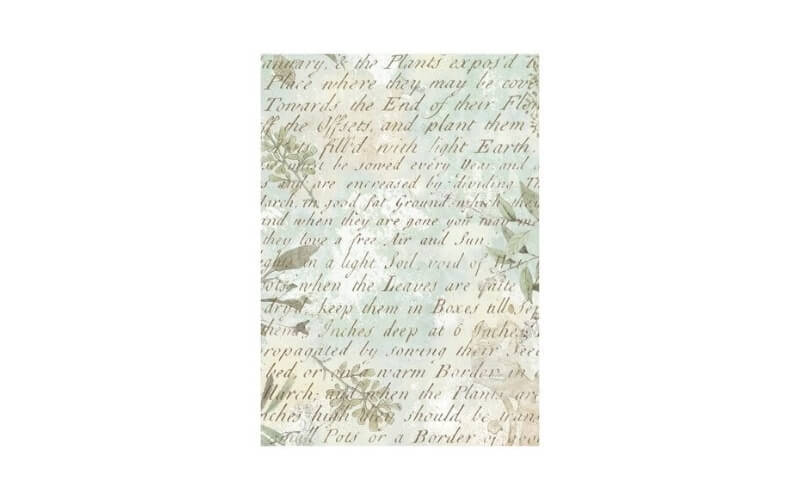 anuary, & the Plants expos'd to
Place where they may be cove
Towards the End of their Flow
ff the Offsets, and plant them
fill'd with light Earth
must be sowed every Year and
s and are encreased by dividing Th
March, in good fat Ground, which they
and when they are gone you may
they love a free Air and Sun
in a light Soil, void of
Pots; when the Leaves are quite
dry'd, keep them in Boxes till Sep
them, Inches deep at 6 Inches
ropagated by sowing their Seed
bed, or on a warm Border in
March; and when the Plants are
nches high they should be trans
small Pots or a Border of good